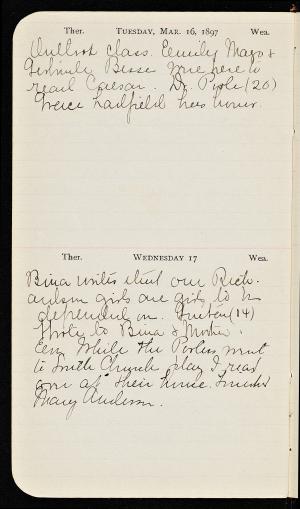 Ther. TUESDAY, MAR. 16, 1897 Wea.
class. Emily Mayo &
Gertrude Besse were here to
read Caesar. Dr. Poole (20)
Grace Hadfield has
Ther. WEDNESDAY 17 Wea.
Bina writes that our Rich-
ardson girls are girls to be
depended on. (14)
Wrote to Bina & Mother.
Eve. While the Pooles went
to South Church play I read
over at their house. Finished
Mary Anderson.